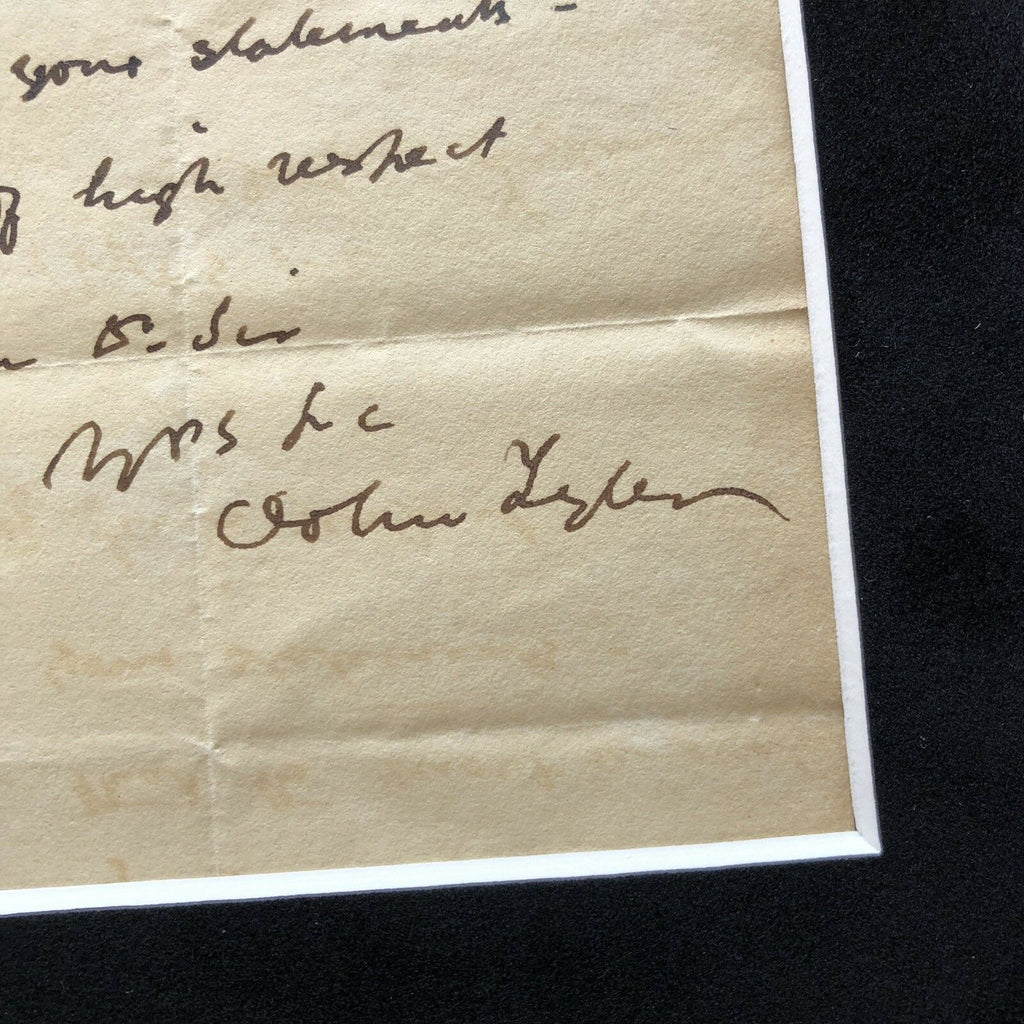 your statements -
of high respect
Dr. Sir
Yrs &c
John Tyler